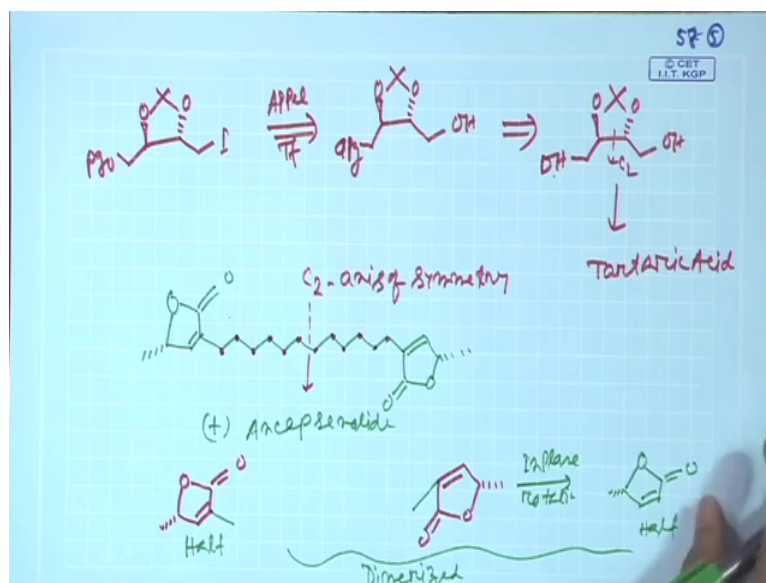 57 ⑤
© CET
I.I.T. KGP
O O
PgO I
Appel
TF
O O
OPg OH
⇒
O O
OH OH
C2
Tartaric Acid
C2-axis of symmetry
O O
O O
(+) Ancepsenolide
O O
Half
O O
Inplane
Rotatn
O O
Half
Dimerized